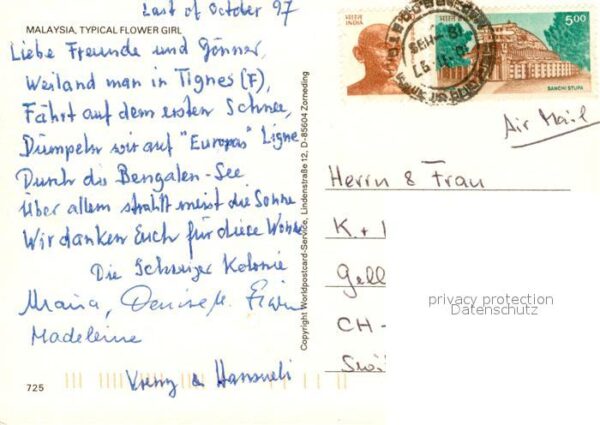 Last of October 97
MALAYSIA, TYPICAL FLOWER GIRL
Liebe Freunde und Gönner,
Weiland man in Tignes (F),
Fährt auf dem ersten Schnee,
Dümpeln wir auf "Europas" Ligne
Durch die Bengalen-See
Über allem strahlt meist die Sonne
Wir danken Euch für diese Wonne
Die Schweizer Kolonie
Maria, Denise M. Erwin
Madeleine
Vreny & Hansueli
725
Copyright Worldpostcard-Service, Lindenstraße 12, D-85604 Zorneding
भारत
INDIA
भारत INDIA
5.00
SANCHI STUPA
Air Mail
Herrn & Frau
K.
Gell
CH-
privacy protection
Datenschutz